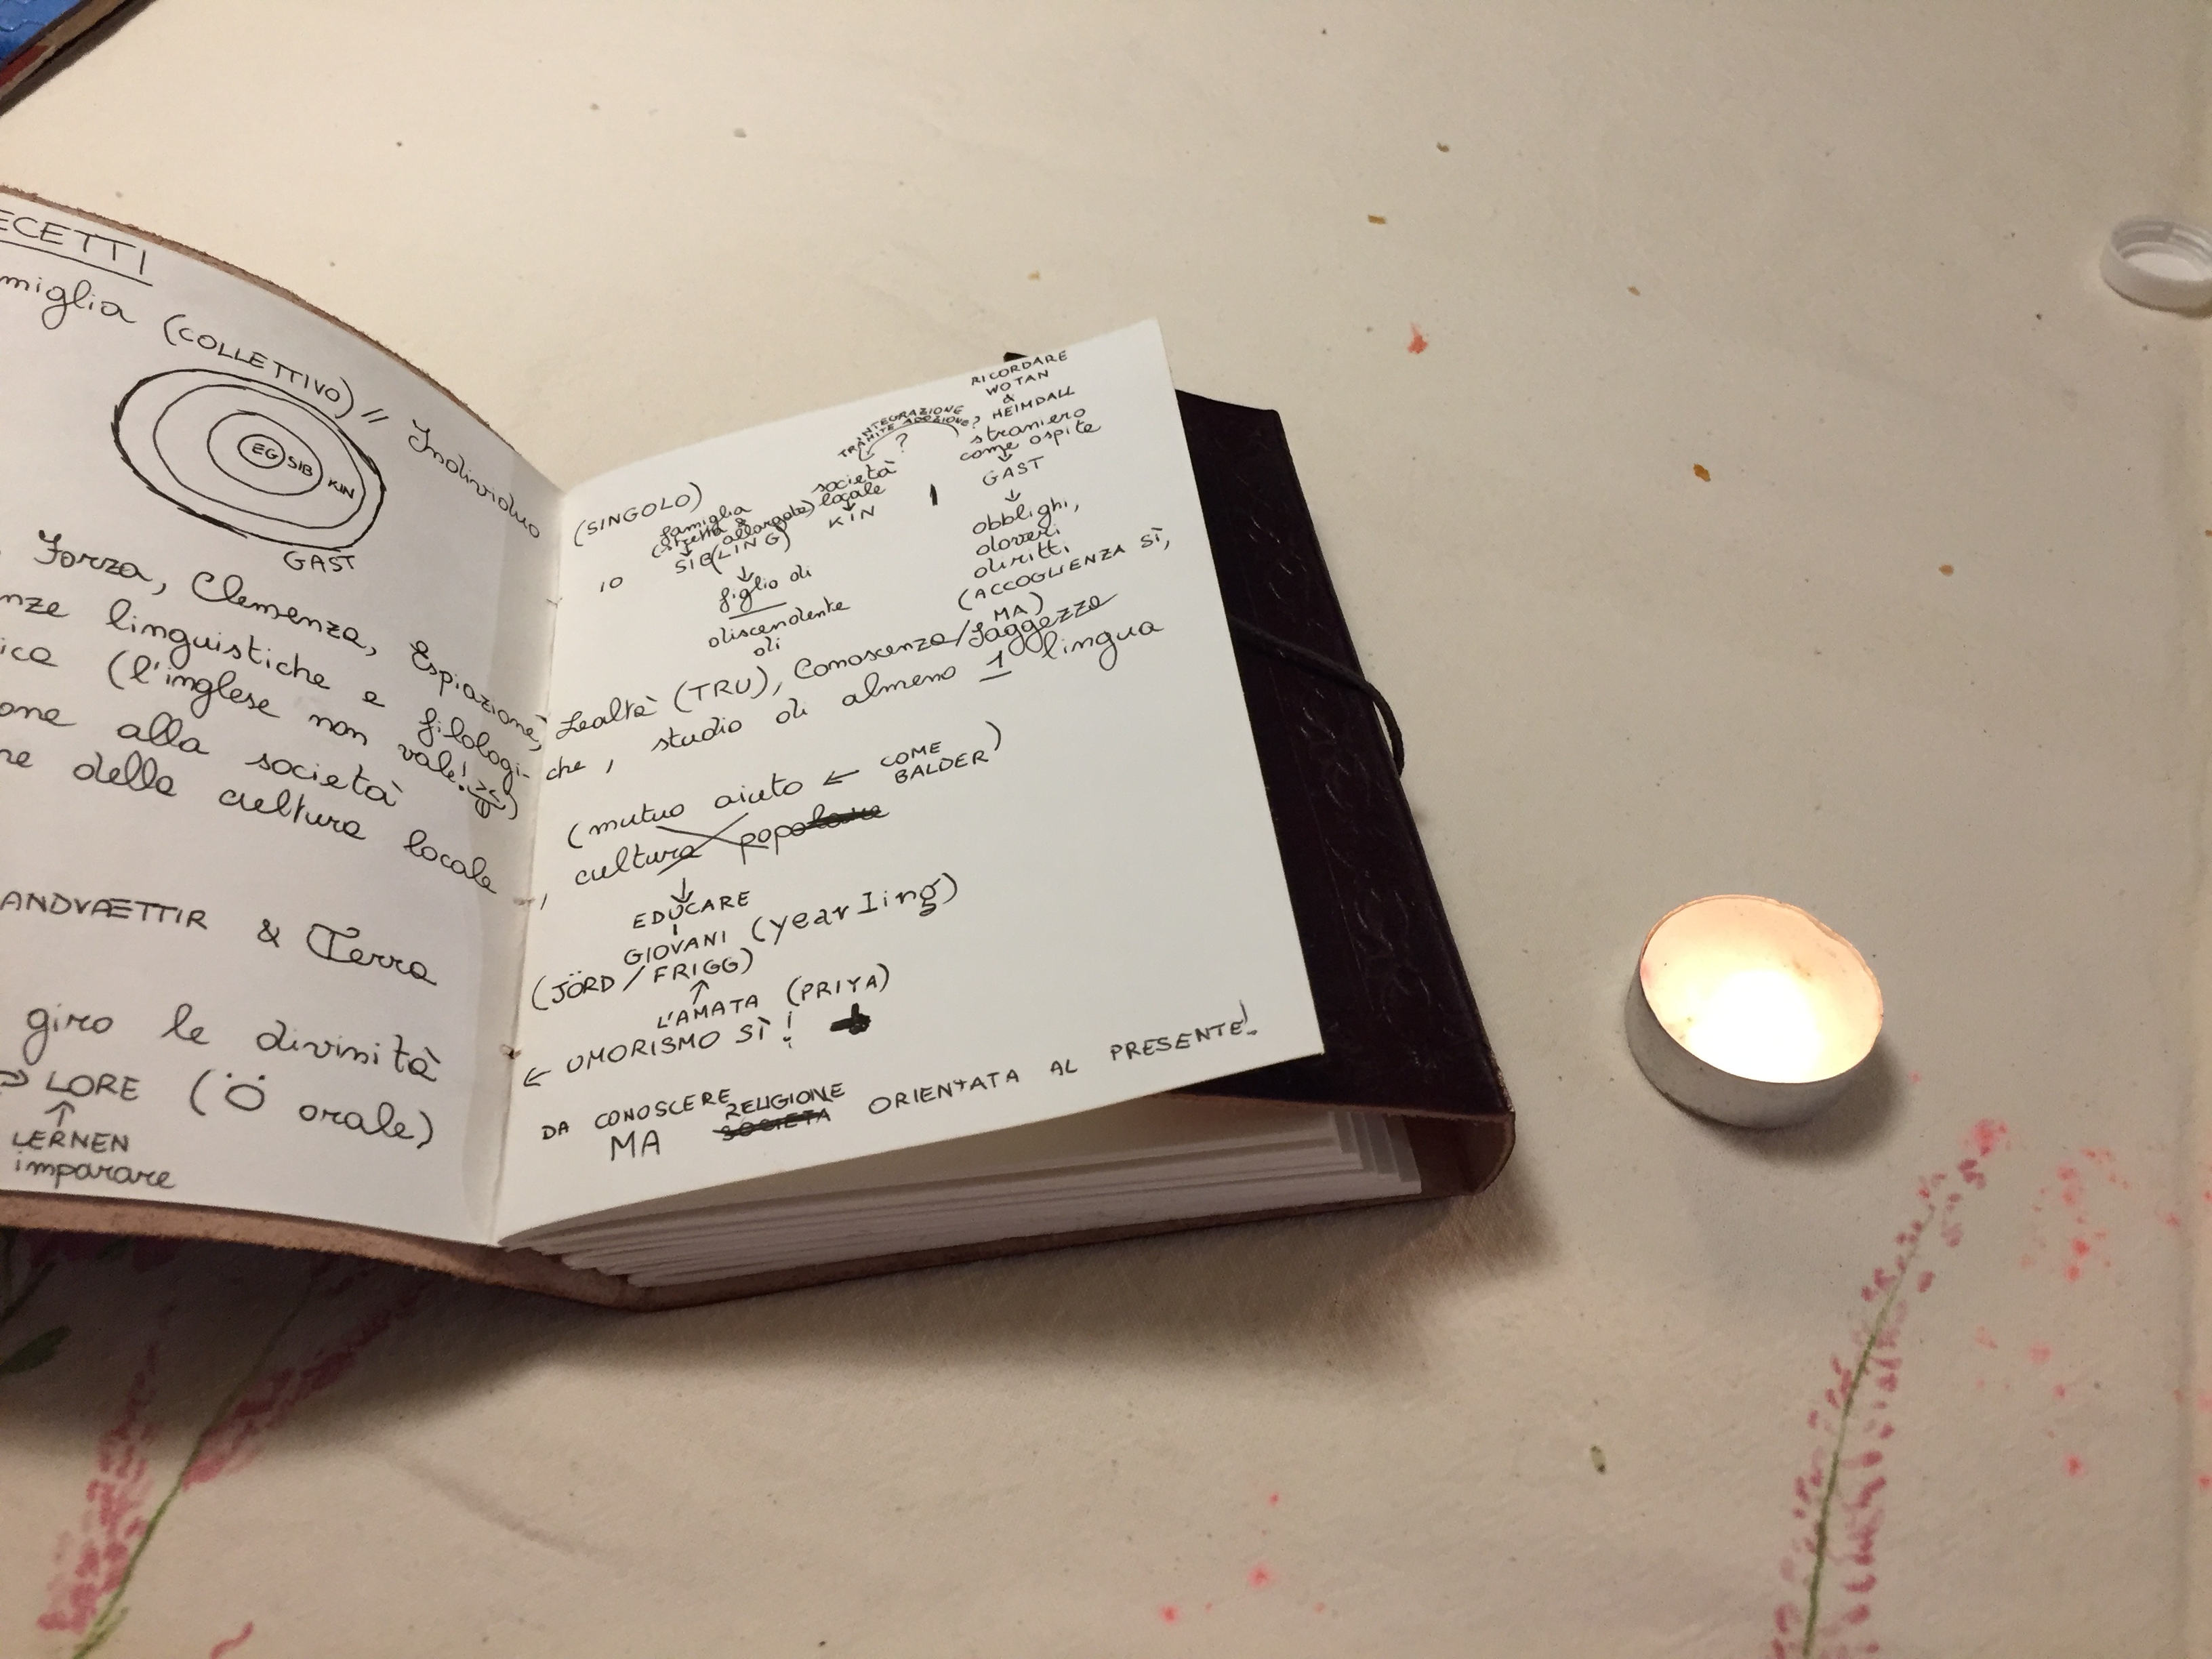 ECETTI
miglia (COLLETTIVO) // Individuo
EG SIB KIN
GAST
Forza, Clemenza, Espiazione,
nze linguistiche e filologi-
ica (l'inglese non vale!)
one alla società
ne della cultura locale
ANDVÆTTIR & Terra
giro le divinità
LORE (Ö orale)
LERNEN
imparare
RICORDARE
WOTAN
&
HEIMDALL
straniero
come ospite
GAST
obblighi,
doveri
diritti
(ACCOGLIENZA SÌ,
MA)
INTEGRAZIONE
TRAMITE ADOZIONE?
?
società
locale
KIN
(SINGOLO)
famiglia
(stretta &
allargata)
SIB(LING)
figlio di
discendente
di
IO
Lealtà (TRU), Conoscenza/Saggezza
che, studio di almeno 1 lingua
(mutuo aiuto ← COME
BALDER)
, cultura popolare
EDUCARE
GIOVANI (yearling)
(JÖRD/FRIGG)
L'AMATA (PRIYA)
← UMORISMO SÌ!
DA CONOSCERE
RELIGIONE
MA SOCIETÀ ORIENTATA AL PRESENTE!